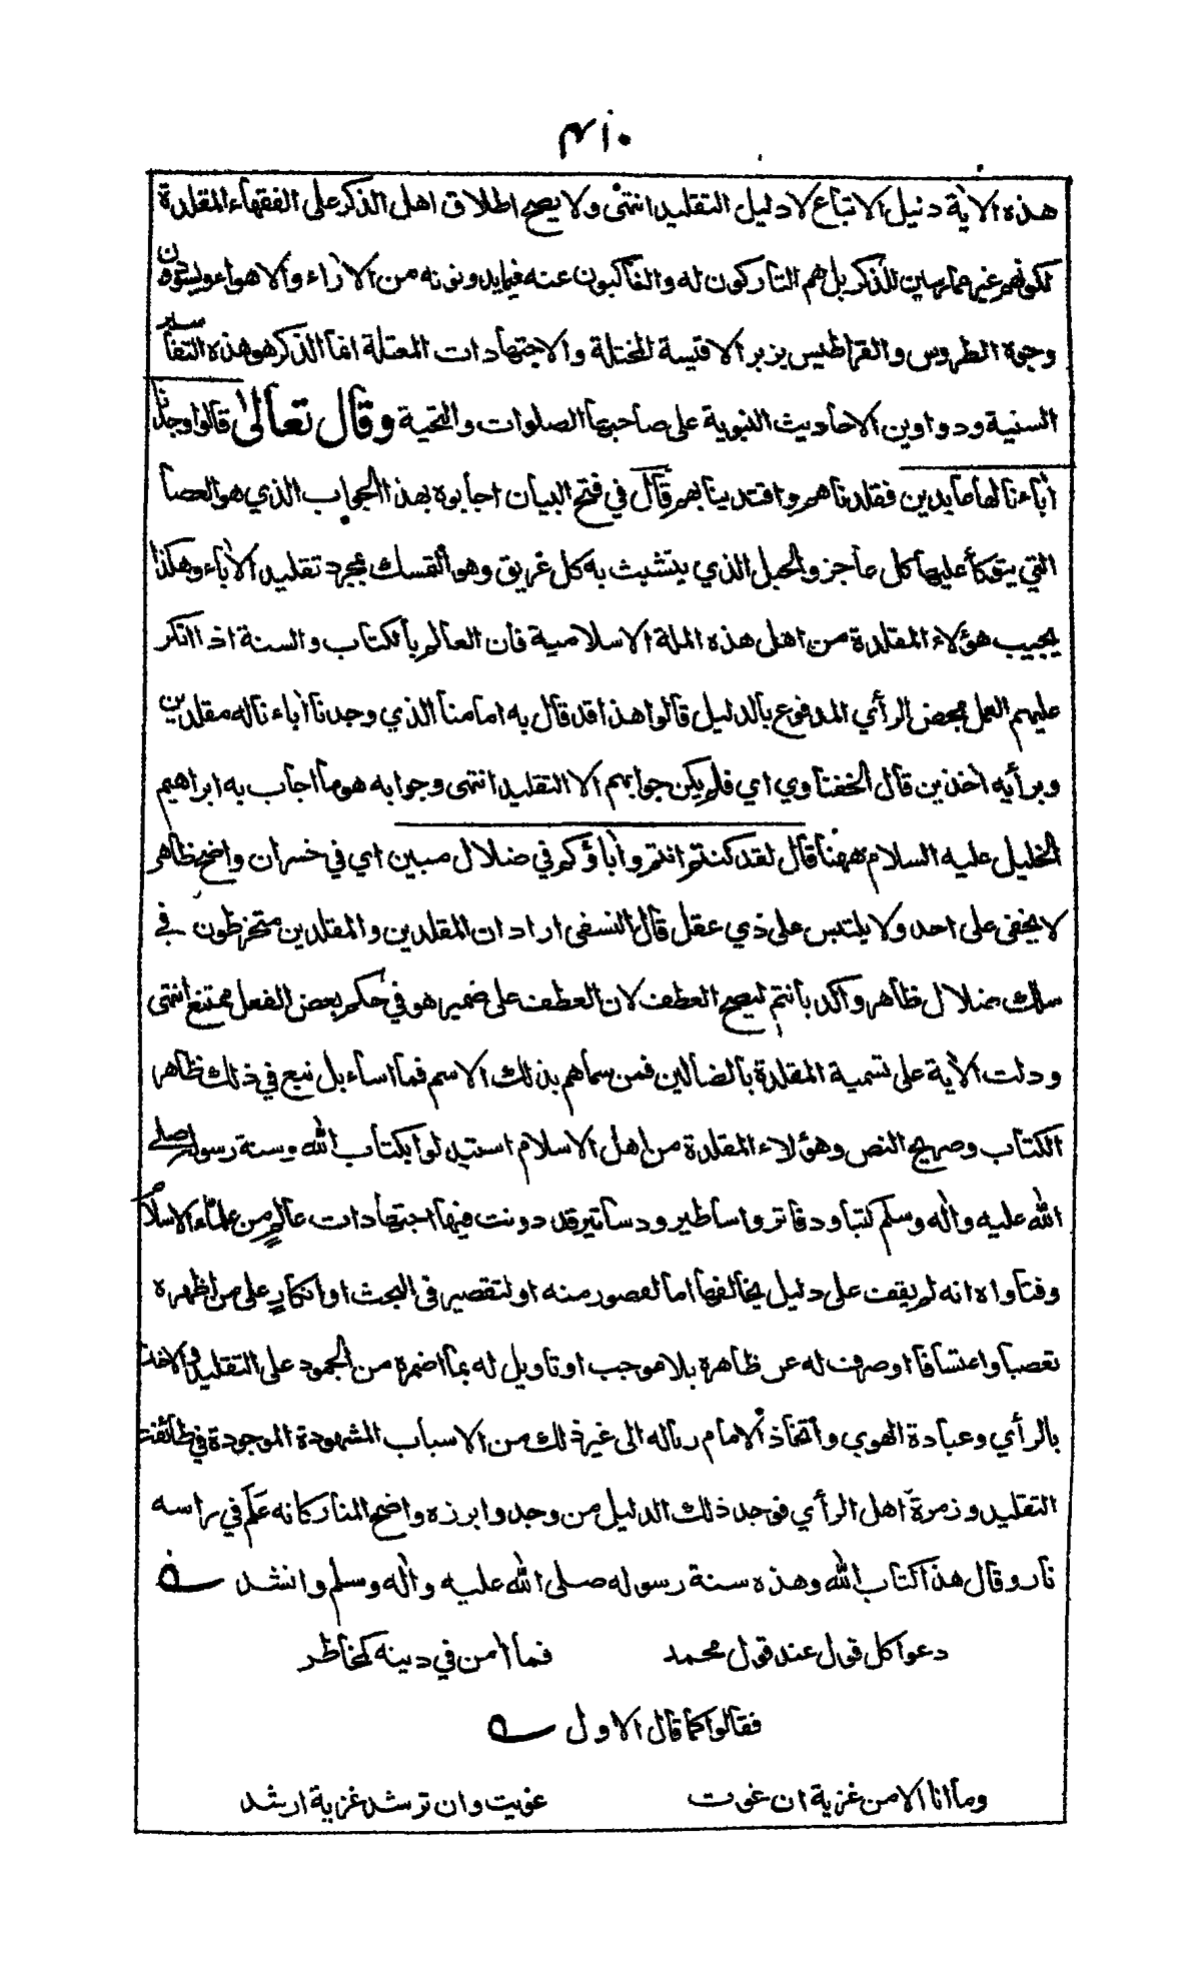 ٤١٠
هذه الاٰية دليل الاتباع لا دليل التقليد انتهٰى ولا يصح اطلاق اهل الذكر على الفقهاء المقلدة
لكونهم غير ممارسين للذكر بل هم التاركون له والناكبون عنه فيما يدونونه من الاٰراء والاهواء ويسودون
وجوه الطروس والقراطيس بزبر الاقيسة المختلة والاجتهادات المعتلة انما الذكر هو هذه التفاسير
السنية ودواوين الاحاديث النبوية على صاحبها الصلوات والتحية وقال تعالىٰ قالوا وجدنا
اٰباءنا لها عابدين فقلدناهم واقتدينا بهم قال في فتح البيان اجابوه بهذا الجواب الذي هو العصا
التي يتوكأ عليها كل عاجز والحبل الذي يتشبث به كل غريق وهو التمسك بمجرد تقليد الاٰباء وهكذا
يجيب هؤلاء المقلدة من اهل هذه الملة الاسلامية فان العالم بالكتاب والسنة اذا انكر
عليهم العمل بمحض الرأي المدفوع بالدليل قالوا هذا قد قال به امامنا الذي وجدنا اٰباءنا له مقلدين
وبرأيه اٰخذين قال الخفناوي اي فلم يكن جوابهم الا التقليد انتهى وجوابه هو ما اجاب به ابراهيم
الخليل عليه السلام ههنا قال لقد كنتم انتم واٰباؤكم في ضلال مبين اي في خسران واضح ظاهر
لا يخفى على احد ولا يلتبس على ذي عقل قال النسفى اراد ان المقلدين والمقلدين منخرطون في
سلك ضلال ظاهر واكد بأنتم ليصح العطف لان العطف على ضمير هو في حكم بعض الفعل ممتنع انتهى
ودلت الاٰية على تسمية المقلدة بالضالين فمن سماهم بذلك الاسم فما اساء بل تبع في ذلك ظاهر
الكتاب وصريح النص وهؤلاء المقلدة من اهل الاسلام استبدلوا بكتاب الله وسنة رسوله صلى
الله عليه واٰله وسلم كتبا ودفاتر واساطير ودساتير قد دونت فيها اجتهادات عالم من علماء الاسلام
وفتاواه انه لم يقف على دليل يخالفها اما لقصور منه او لتقصير فى البحث او انكار على من اظهره
تعصبا واعتسافا او صرف له عن ظاهره بلا موجب او تاويل له بما اضمره من الجمود على التقليد والاخذ
بالرأي وعبادة الهوي واتخاذ الامام ربا له الى غير ذلك من الاسباب المشهودة الموجودة في طائفة
التقليد وزمرة اهل الرأي فوجد ذلك الدليل من وجد وابرزه واضح المنار كانه علم في راسه
نار وقال هذا كتاب الله وهذه سنة رسوله صلى الله عليه واٰله وسلم وانشد
دعوا كل قول عند قول محمد فما اٰمن في دينه كمخاطر
فقالوا كما قال الاول
وما انا الا من غزية ان غوت غويت وان ترشد غزية ارشد